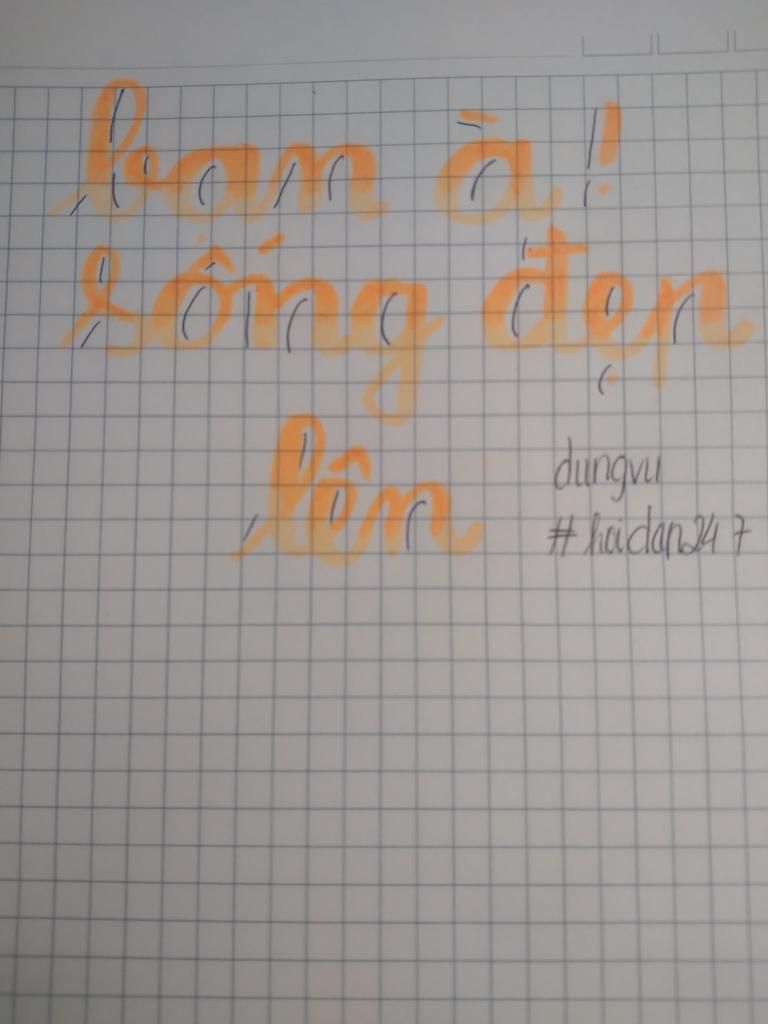 bạn à!
sống đẹp
lên
dungvu
#hoidap247